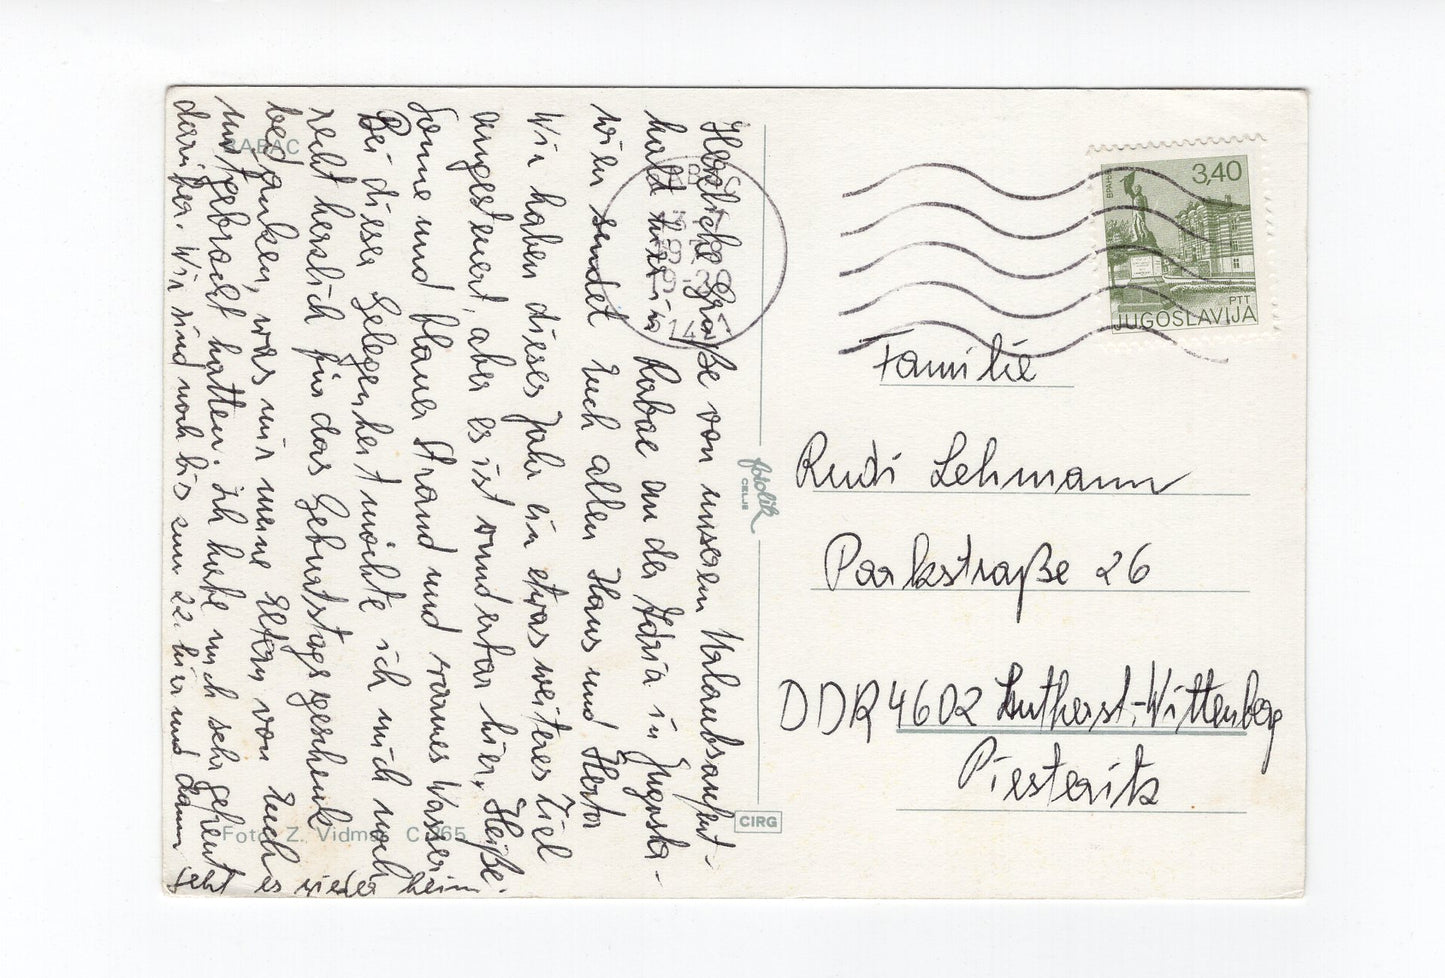 RABAC
Herzliche Grüße von unserem Urlaubsaufent-
halt hier in Rabac an der Adria in Jugosla-
wien sendet Euch allen Hans und Herta
Wir haben dieses Jahr ein etwas weiteres Ziel
angesteuert, aber es ist wunderbar hier. Heiße
Sonne und blauer Strand und warmes Wasser.
Bei dieser Gelegenheit möchte ich mich noch
recht herzlich für das Geburtstagsgeschenk
bedanken, was mir meine Eltern von Euch
mitgebracht hatten. Ich habe mich sehr gefreut
darüber. Wir sind noch bis zum 22. hier und dann
geht es wieder heim
Foto Z. Vidmar C 265
fotolik
CELJE
CIRG
RABAC
13-7
19-20
3,40
PTT
JUGOSLAVIJA
Familie
Rudi Lehmann
Parkstraße 26
DDR 4602 Lutherst.-Wittenberg
Piesteritz